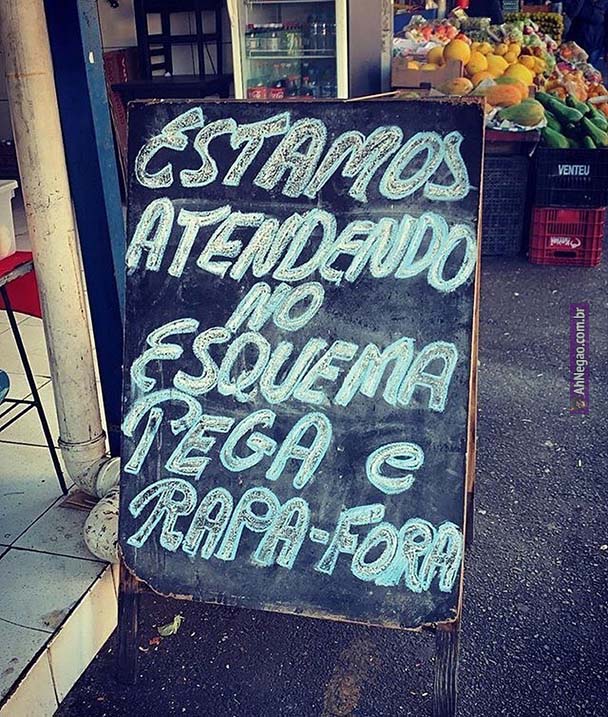 ESTAMOS
ATENDENDO
NO
ESQUEMA
PEGA e
RAPA-FORA
VENTEU
AhNegao.com.br